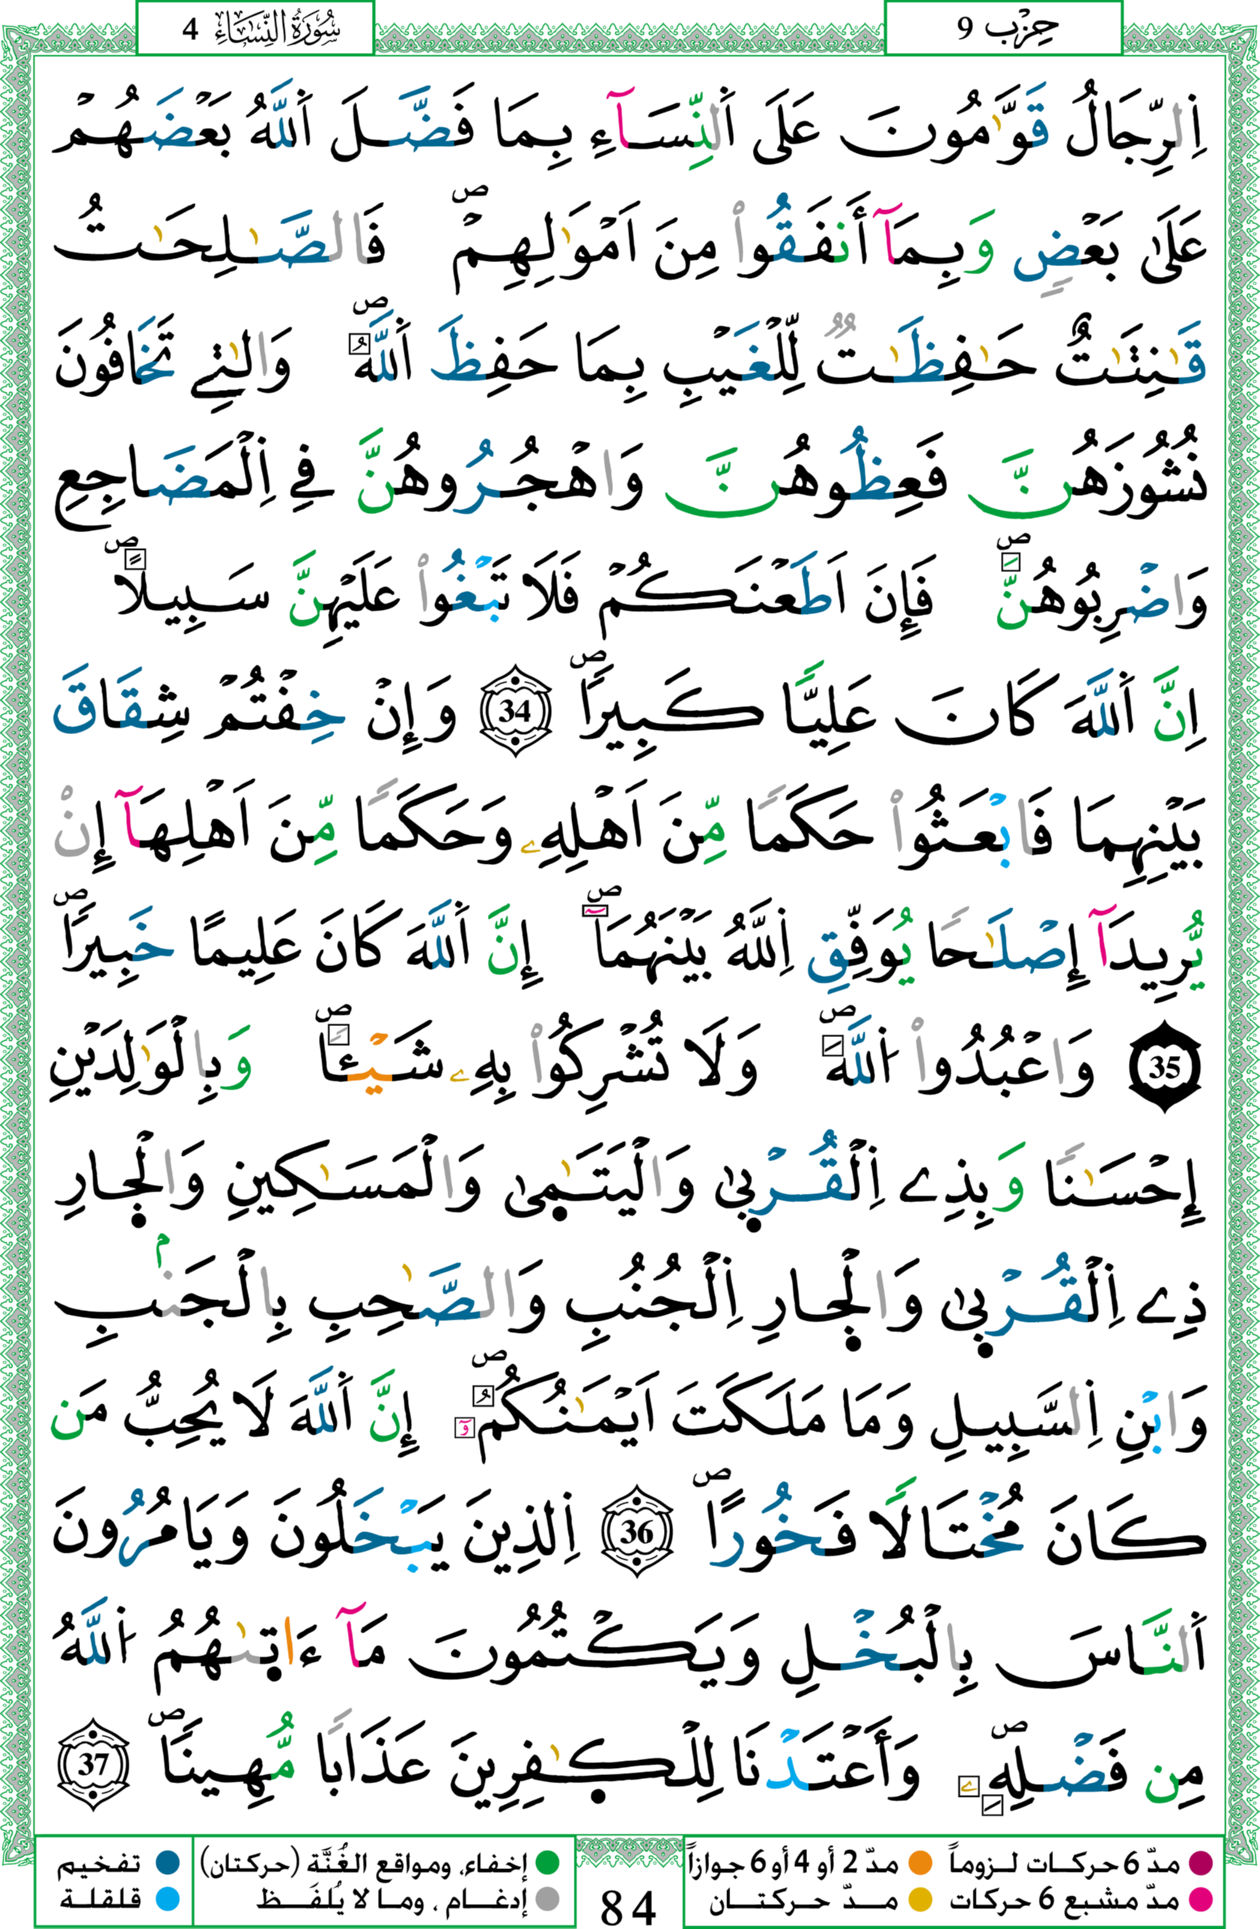 حِزْب 9
سُورَةُ النِّسَاءِ 4
اِ۬لرِّجَالُ قَوَّٰمُونَ عَلَى اَ۬لنِّسَآءِ بِمَا فَضَّلَ اَ۬للَّهُ بَعْضَهُمْ
عَلَىٰ بَعْضٖ وَبِمَآ أَنفَقُواْ مِنَ اَمْوَٰلِهِمْۖ فَالصَّٰلِحَٰتُ
قَٰنِتَٰتٌ حَٰفِظَٰتٞ لِّلْغَيْبِ بِمَا حَفِظَ اَ۬للَّهُۖ وَالٰتِے تَخَافُونَ
نُشُوزَهُنَّ فَعِظُوهُنَّ وَاهْجُرُوهُنَّ فِے اِ۬لْمَضَاجِعِ
وَاضْرِبُوهُنَّۖ فَإِنَ اَطَعْنَكُمْ فَلَا تَبْغُواْ عَلَيْهِنَّ سَبِيلًاۖ
اِنَّ اَ۬للَّهَ كَانَ عَلِيّٗا كَبِيرٗاۖ 34 وَإِنْ خِفْتُمْ شِقَاقَ
بَيْنِهِمَا فَابْعَثُواْ حَكَمٗا مِّنَ اَهْلِهِۦ وَحَكَمٗا مِّنَ اَهْلِهَآ إِنْ
يُّرِيدَآ إِصْلَٰحٗا يُوَفِّقِ اِ۬للَّهُ بَيْنَهُمَآۖ إِنَّ اَ۬للَّهَ كَانَ عَلِيمًا خَبِيرٗاۖ
35 وَاعْبُدُواْ اُ۬للَّهَۖ وَلَا تُشْرِكُواْ بِهِۦ شَيْـٔٗاۖ وَبِالْوَٰلِدَيْنِ
إِحْسَٰنٗا وَبِذِے اِ۬لْقُرْب۪ىٰ وَالْيَتَٰم۪ىٰ وَالْمَسَٰكِينِ وَالْج۪ارِ
ذِے اِ۬لْقُرْب۪ىٰ وَالْج۪ارِ اِ۬لْجُنُبِ وَالصَّٰحِبِ بِالْجَنۢبِ
وَابْنِ اِ۬لسَّبِيلِ وَمَا مَلَكَتَ اَيْمَٰنُكُمُۥٓۖ إِنَّ اَ۬للَّهَ لَا يُحِبُّ مَن
كَانَ مُخْتَالٗا فَخُورًاۖ 36 اِ۬لذِينَ يَبْخَلُونَ وَيَامُرُونَ
اَ۬لنَّاسَ بِالْبُخْلِ وَيَكْتُمُونَ مَآ ءَات۪ىٰهُمُ اُ۬للَّهُ
مِن فَضْلِهِۦۖ وَأَعْتَدْنَا لِلْكٰ۪فِرِينَ عَذَابٗا مُّهِينٗاۖ 37
مدّ 6 حركات لـزوماً مدّ 2 أو 4 أو 6 جوازاً
مدّ مشبع 6 حركات مـدّ حـركتــان
84
إخفاء، ومواقع الغُنَّة (حركتان) تفخيم
إدغـام ، ومـا لا يُلفَـظ قلقلة